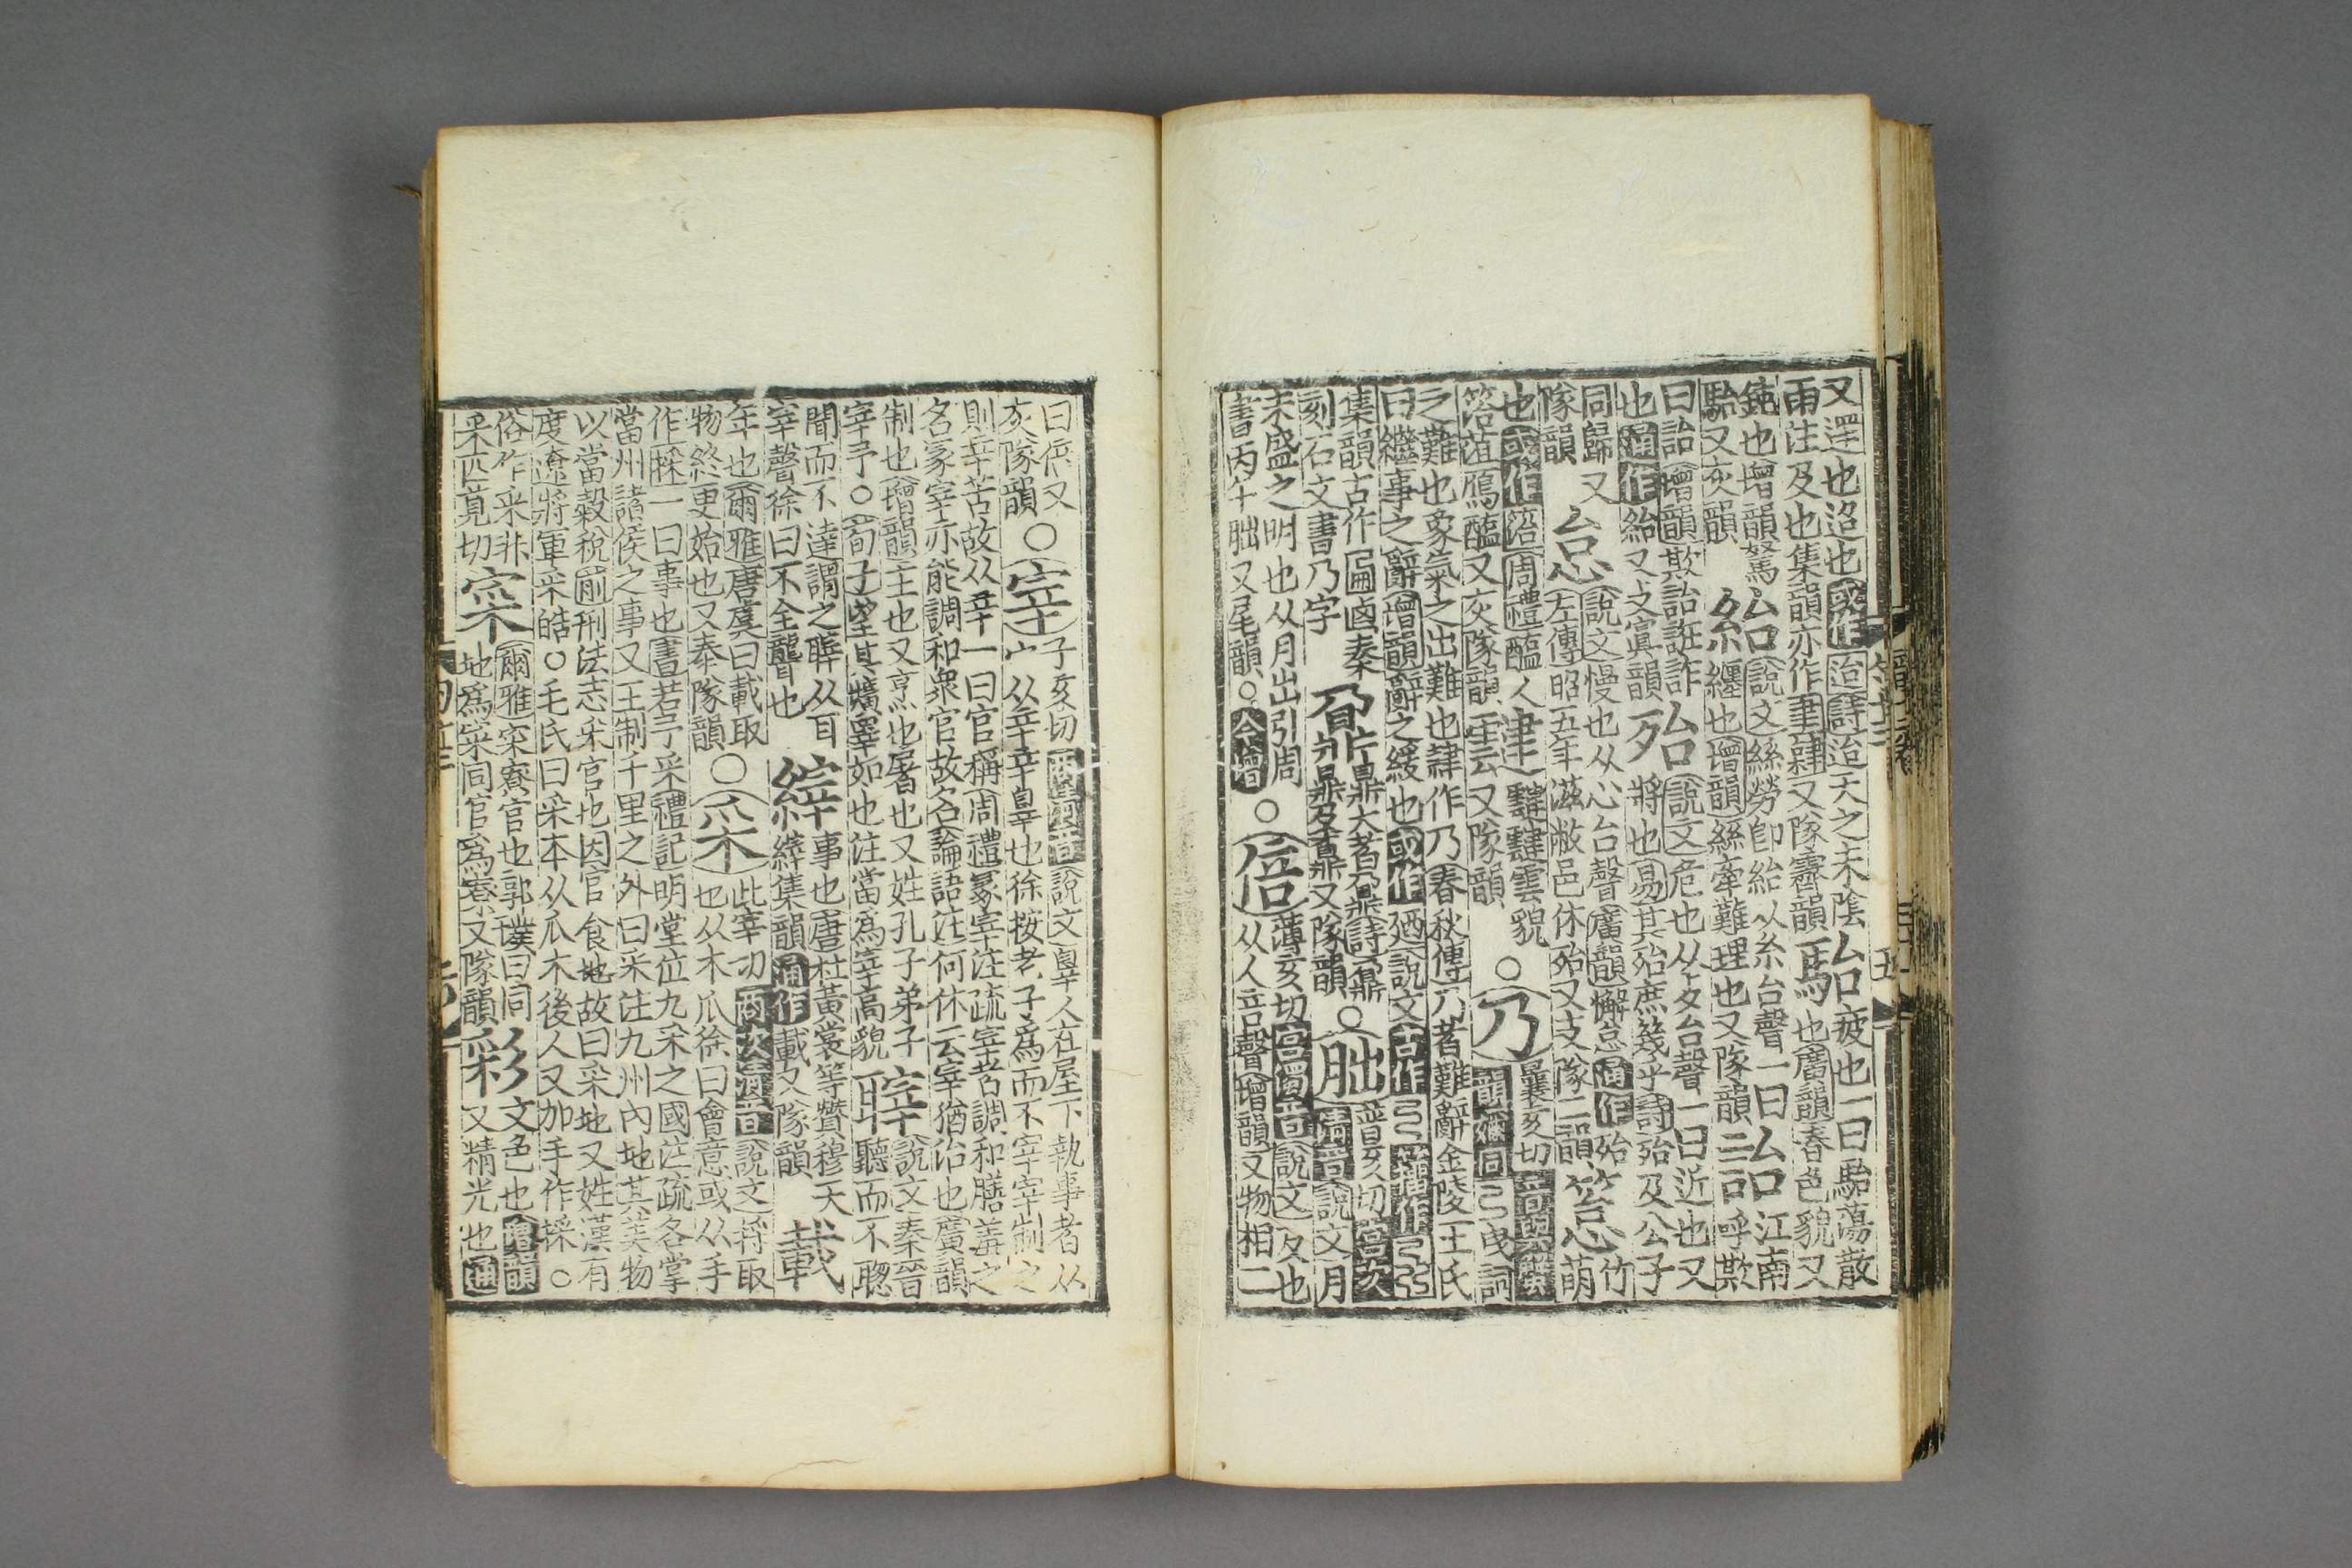 又遝也迨也或作迨詩迨天之未陰
雨注及也集韻亦作隶隸又隊霽韻
駘疲也一曰駘蕩散
也廣韻春色貌又
鈍也增韻駑
駘又灰韻
紿說文絲勞卽紿从糸台聲一曰
纏也增韻絲牽難理也又隊韻
詒江南
呼欺
曰詒增韻欺詒誑詐
也通作紿又支寘韻
殆說文危也从歹台聲一曰近也又
將也易其殆庶幾乎詩殆及公子
同歸又
隊韻
怠說文慢也从心台聲廣韻懈怠通作殆
左傳昭五年滋敝邑休殆又支隊二韻
箈竹
萌
也或作箔周禮醢人
箈菹鴈醢又灰隊韻
靆靉靆雲貌
又隊韻
○乃曩亥切
說文曳詞
之難也象氣之出難也隸作乃春秋傳乃者難辭金陵王氏
曰繼事之辭增韻辭之緩也或作廼說文古作弓籀作
集韻古作𠧟鹵秦
刻石文書乃字
鼐鼎大者鼐詩鼐
鼎及鼒又隊韻
○朏普亥切
說文月
未盛之明也从月出引周
書丙午朏又尾韻○今增
○倍薄亥切說文反也
从人咅聲增韻又物相二
曰倍又
灰隊韻
○宰子亥切說文辠人在屋下執事者从
宀从辛辛辠也徐按老子爲而不宰宰制之
則辛苦故从辛一曰官稱周禮冢宰注疏宰者調和膳羞之
名冢宰亦能調和衆官故名論語注何休云宰猶治也廣韻
制也增韻主也又烹也屠也又姓孔子弟子
宰予○荀子望其壙睪如也注當爲宰高貌
聹說文秦晉
聽而不聦
聞而不達謂之聹从耳
宰聲徐曰不全聾也
縡事也唐杜黃裳等贊穆天
縡集韻通作載又隊韻
載
年也爾雅唐虞曰載取
物終更始也又泰隊韻
○采此宰切說文捋取
也从木爪徐曰會意或从手
作採一曰事也書若予采禮記明堂位九采之國注疏各掌
當州諸侯之事又王制千里之外曰采注九州內地其美物
以當穀稅前刑法志采官也因官食地故曰采地又姓漢有
度遼將軍采皓○毛氏曰采本从爪木後人又加手作採○
俗作釆非
釆匹莧切
寀爾雅寀寮官也郭璞曰同
地爲寀同官爲寮又隊韻
彩文色也增韻
又精光也通